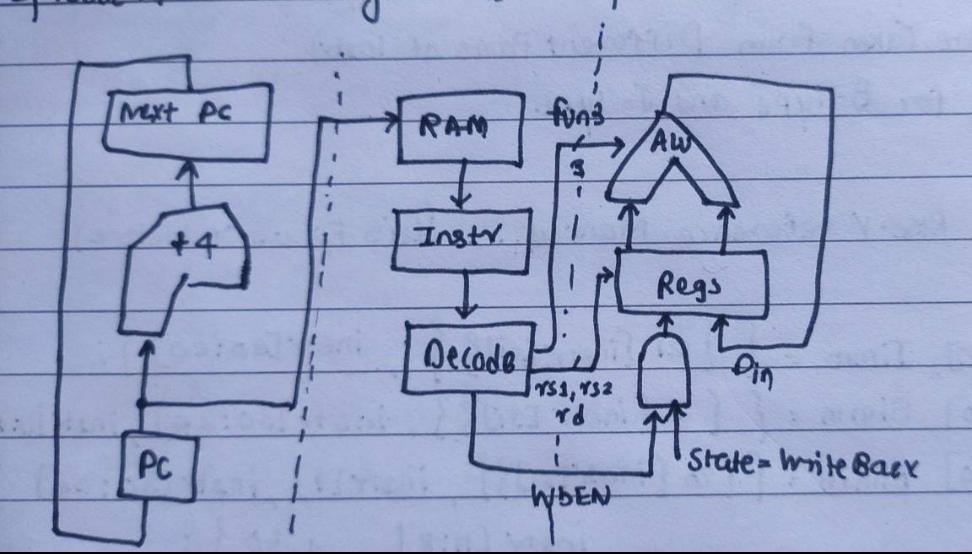 Next PC
+4
PC
RAM
Instr
Decode
fun3
3
ALU
Regs
rs1, rs2
rd
Din
State = WriteBack
WBEN